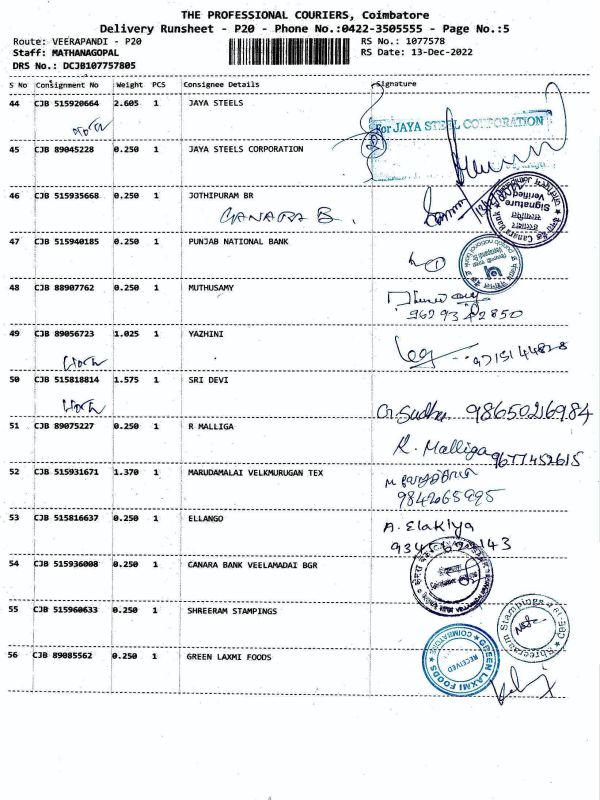 THE PROFESSIONAL COURIERS, Coimbatore
Delivery Runsheet - P20 - Phone No.:0422-3505555 - Page No.:5
Route: VEERAPANDI - P20 RS No.: 1077578
Staff: MATHANAGOPAL RS Date: 13-Dec-2022
DRS No.: DCJB107757805
S No Consignment No Weight PCS Consignee Details Signature
44 CJB 515920664 2.605 1 JAYA STEELS
For JAYA STEEL CORPORATION
45 CJB 89045228 0.250 1 JAYA STEELS CORPORATION
46 CJB 515935668 0.250 1 JOTHIPURAM BR
CANARA B.
Signature Verified
Canara Bank
47 CJB 515940185 0.250 1 PUNJAB NATIONAL BANK
48 CJB 88907762 0.250 1 MUTHUSAMY
49 CJB 89056723 1.025 1 YAZHINI
50 CJB 515818814 1.575 1 SRI DEVI
9865026984
51 CJB 89075227 0.250 1 R MALLIGA
R. Malliga 9677452615
52 CJB 515931671 1.370 1 MARUDAMALAI VELKMURUGAN TEX
53 CJB 515816637 0.250 1 ELLANGO
A. Elakiya
54 CJB 515936008 0.250 1 CANARA BANK VEELAMADAI BGR
55 CJB 515960633 0.250 1 SHREERAM STAMPINGS
Shreeram Stampings
56 CJB 89085562 0.250 1 GREEN LAXMI FOODS
GREEN LAXMI FOODS
COIMBATORE
RECEIVED